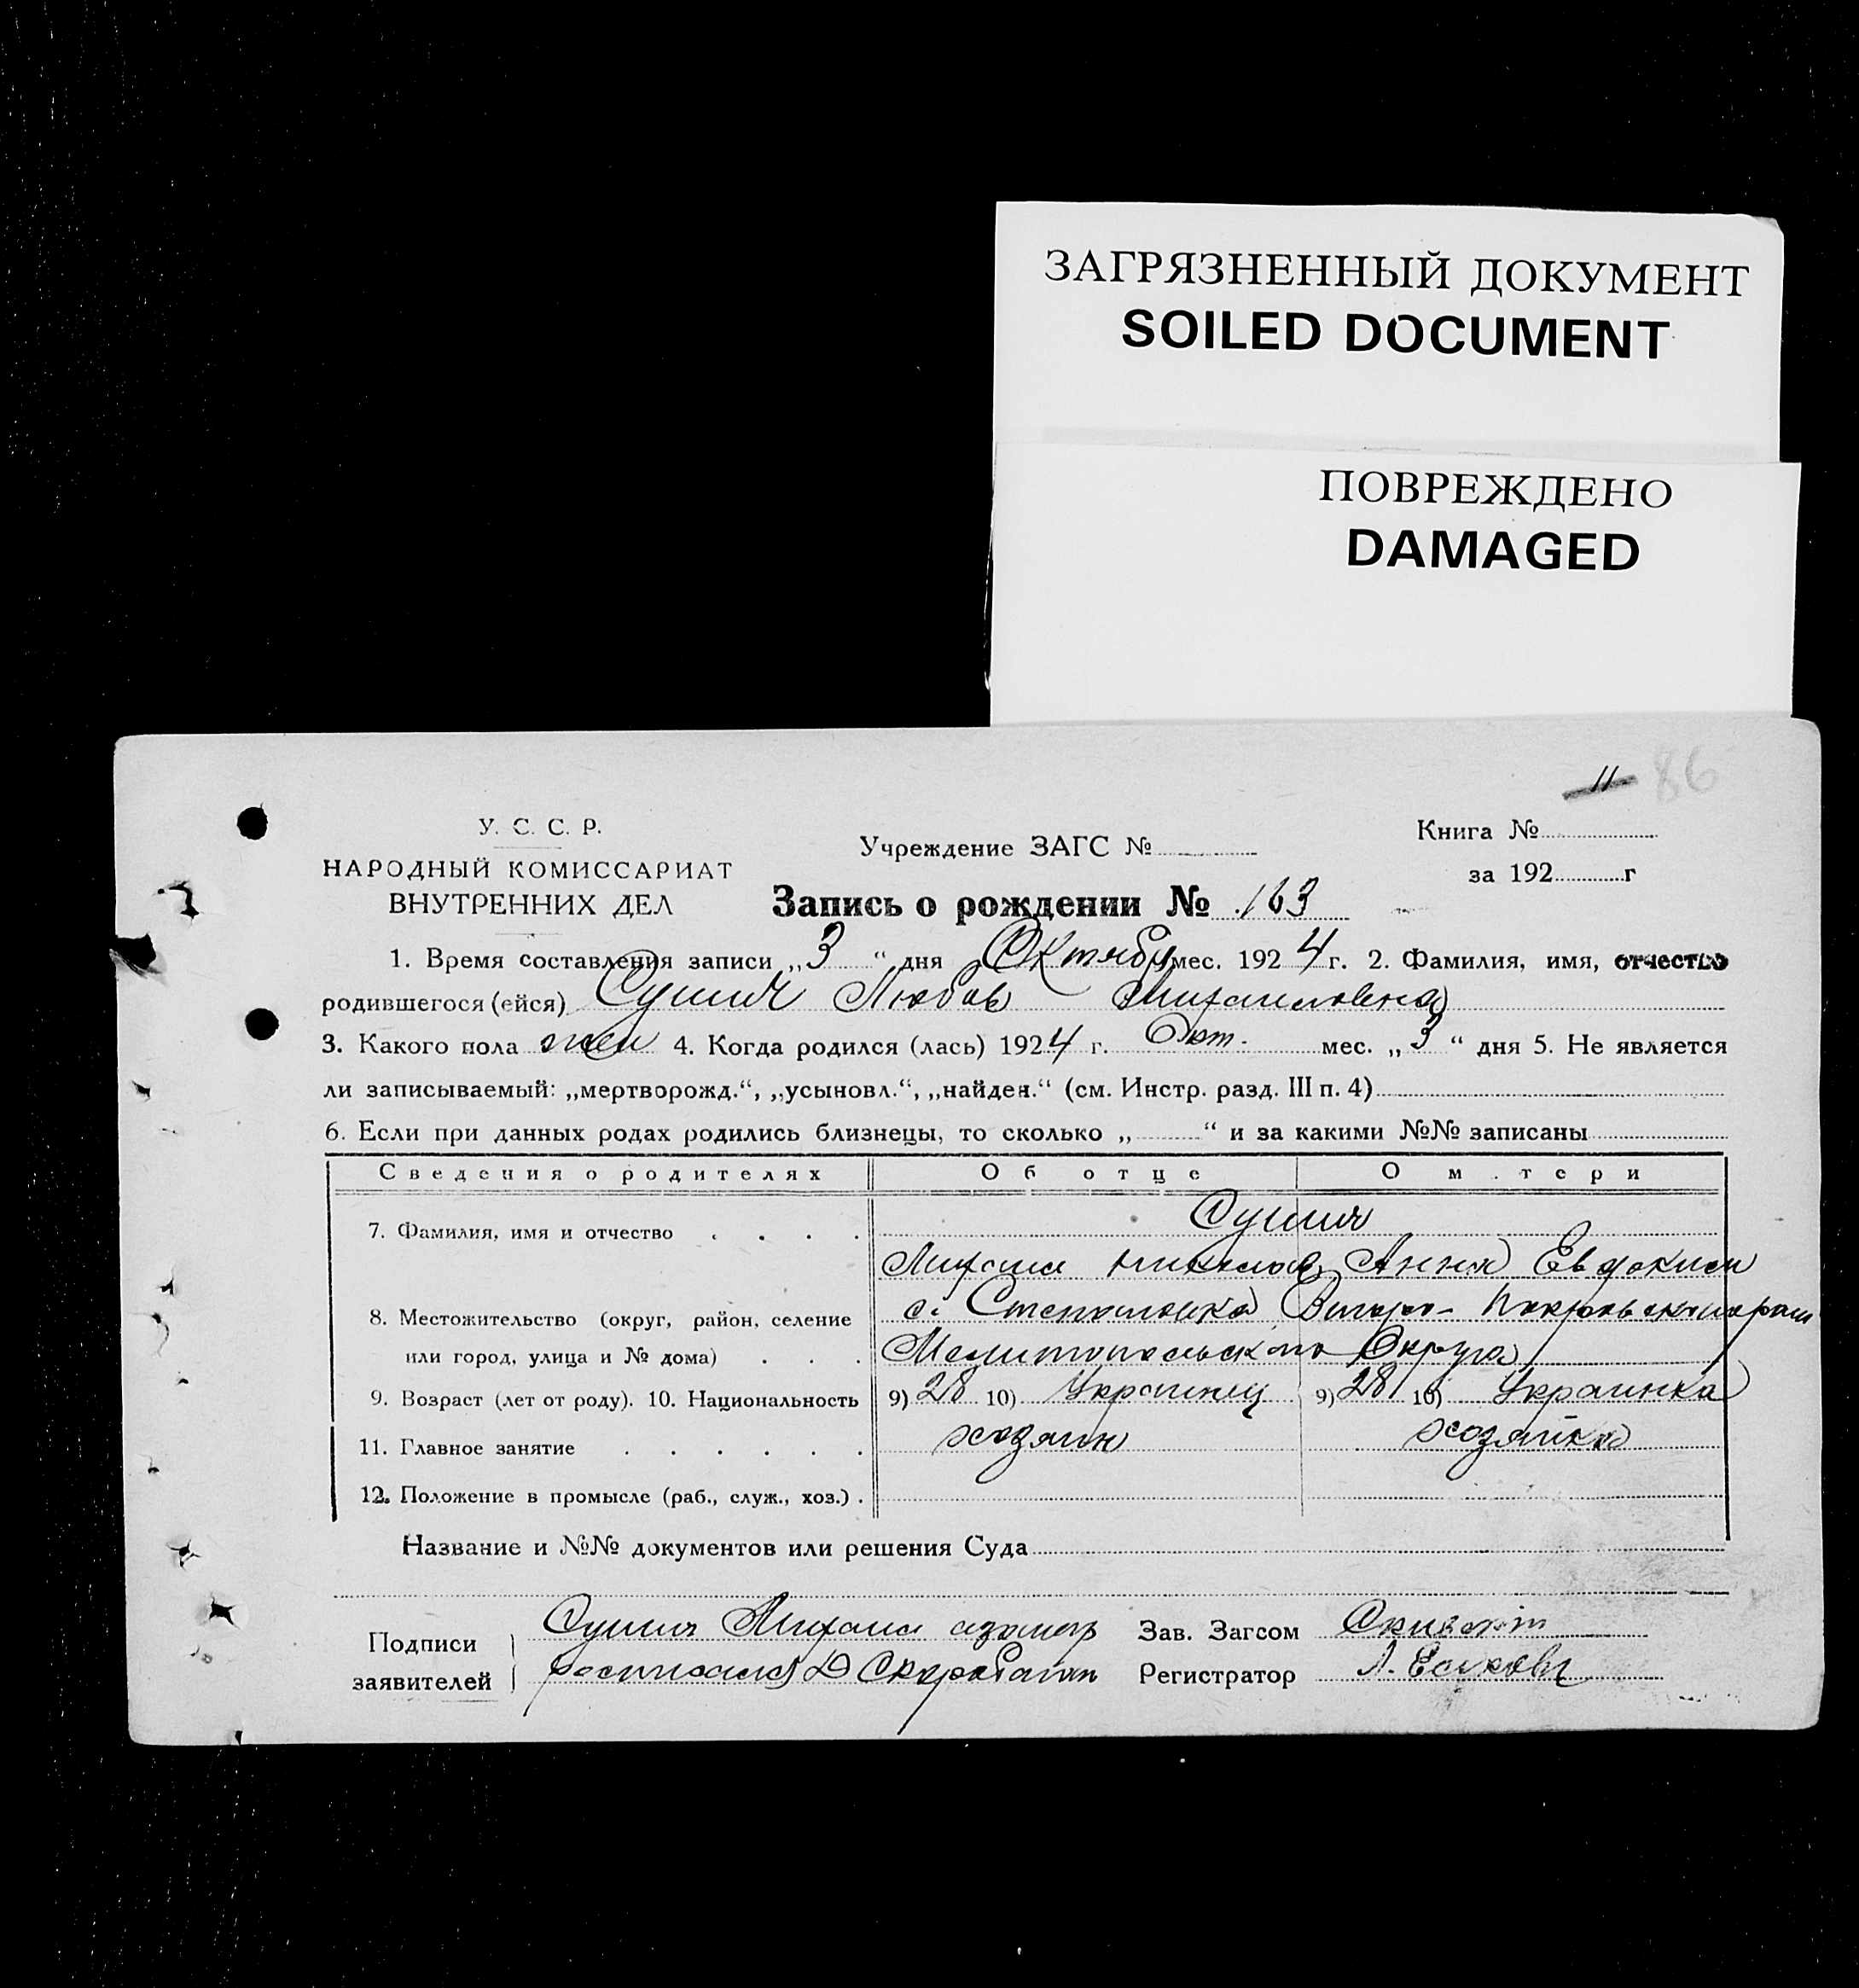 ЗАГРЯЗНЕННЫЙ ДОКУМЕНТ
SOILED DOCUMENT
ПОВРЕЖДЕНО
DAMAGED
11 86
У. С. С. Р.
НАРОДНЫЙ КОМИССАРИАТ
ВНУТРЕННИХ ДЕЛ
Учреждение ЗАГС №
Книга №
за 192 г
Запись о рождении № 163
1. Время составления записи „3“ дня Октябр мес. 1924 г. 2. Фамилия, имя, отчество
родившегося (ейся) Сушич Любов Михаиловна
3. Какого пола жен 4. Когда родился (лась) 1924 г. Окт. мес. „3“ дня 5. Не является
ли записываемый: „мертворожд.“, „усыновл.“, „найден.“ (см. Инстр. разд. III п. 4)
6. Если при данных родах родились близнецы, то сколько „ “ и за какими №№ записаны
Сведения о родителях Об отце О м тери
7. Фамилия, имя и отчество Сушич
Михаил Николов Анна Евдоким
8. Местожительство (округ, район, селение с. Степановка Покровского
или город, улица и № дома) Мелитопольского Округа
9. Возраст (лет от роду). 10. Национальность 9) 28 10) Украинец 9) 28 10) Украинка
11. Главное занятие хозяин хозяйка
12. Положение в промысле (раб., служ., хоз.)
Название и №№ документов или решения Суда
Подписи заявителей
Сушич Михаил
росписался
Зав. Загсом
Регистратор